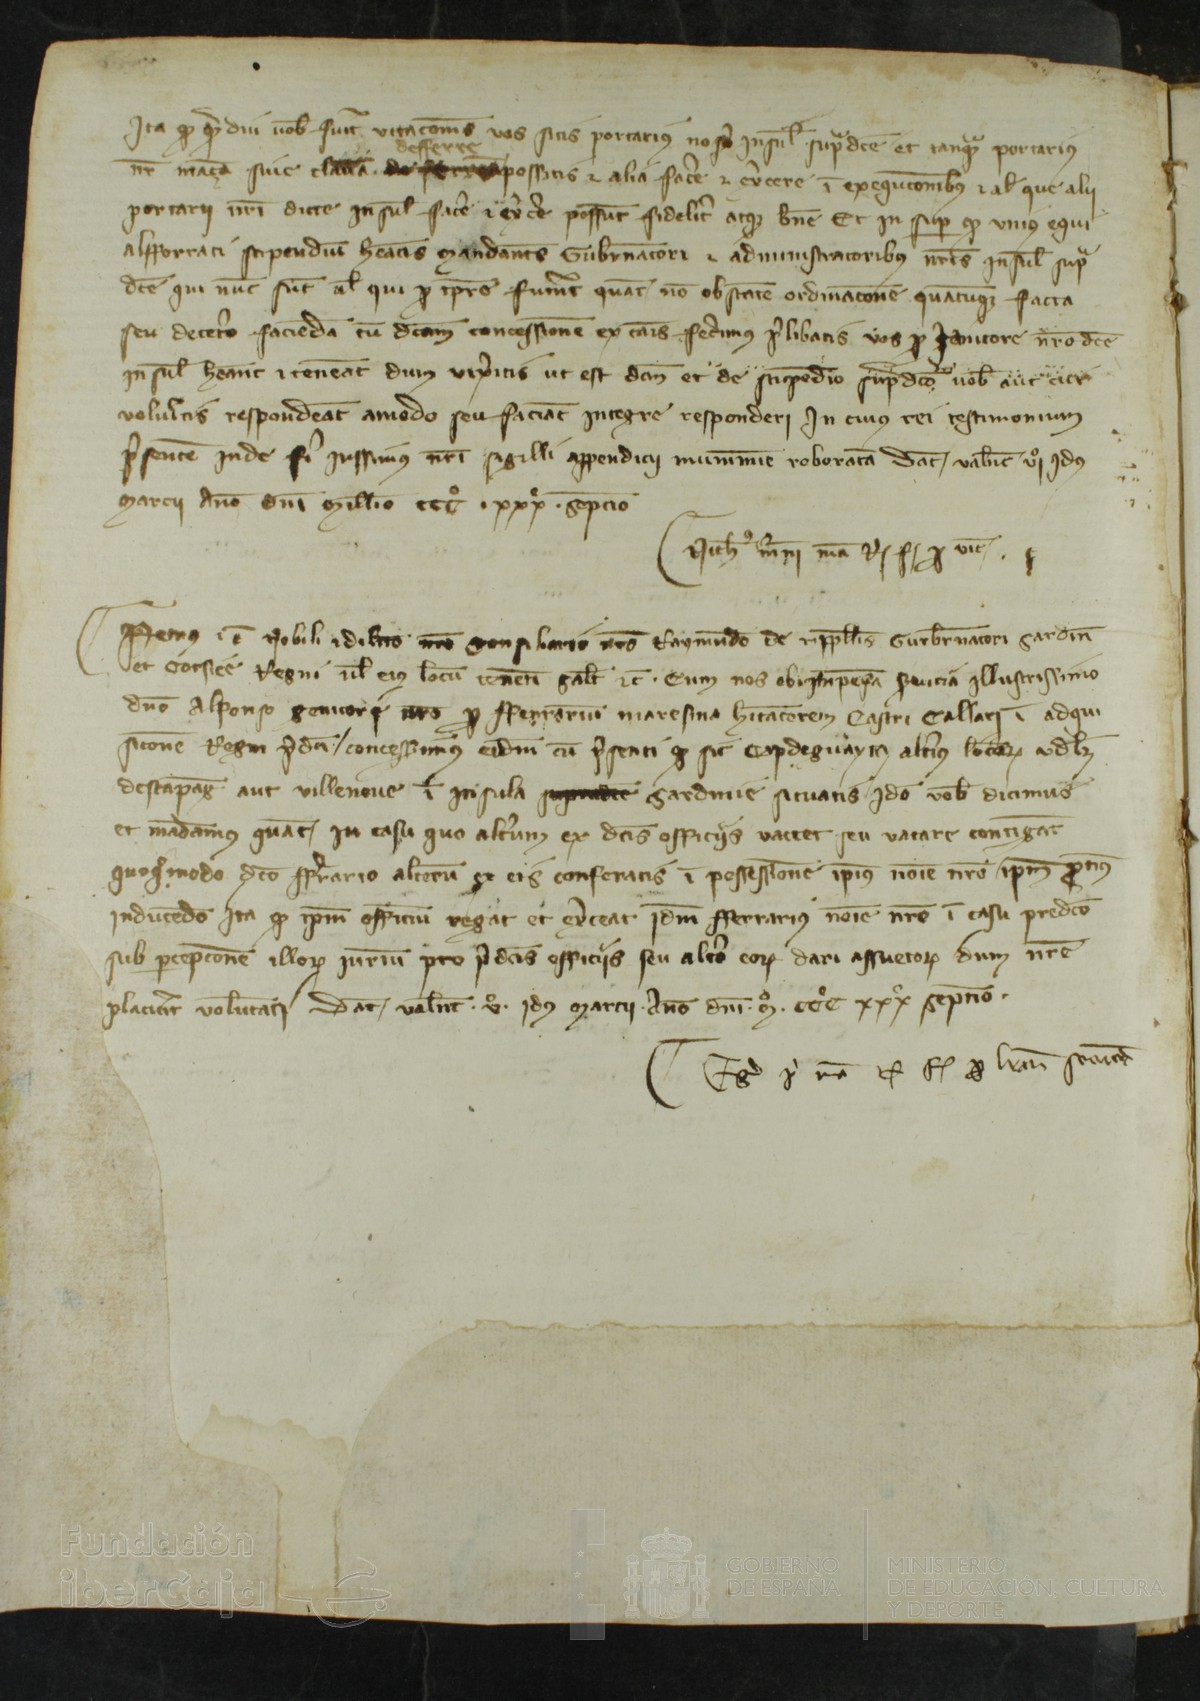 Ita qd qdiu vob fuit vita comes vos sitis portarius nostr Insul supdce et tanq portarius
defferre
nr maça sive possitis & alia facere & exercere i exequcionibz & al que alii
portarii nri dicte Insul facere & exercere possunt fidelit atqz bene Et insup qd unius equi
alfforrati stipendiu heatis Mandantes Gubernatori & administratoribus nris Insul sup
dce qui nuc sut vl qui p tpre fuerint quat no obstate ordinacone quacuqz facta
seu decetero facieda cu dcam concessione ex cais fecimus plibatis vos p portitore nro dce
Insul heant & teneat dum vixitis ut est dcm et de stipedio supdco vob aut cui
volueritis respondeat amodo seu faciat integre responderi In cuius rei testimonium
psente inde fi iussimus nri sigilli appendicii munimine roborata Dat valen vi idus
Marcii Ano Dni Millio CCCo xxxo septio

Petrus & c Nobili & dilco consiliario nro Raymundo de rippllis Gubernatori Sardin
et Corsice Regni vl eius locu teneti salt & c Cum nos ob impensa servicia illustrissimo
dno Alfonso genitori nro p fferrariu maresma hitatorem Castri Callari i adqui
sicone Regni pdci concesserimus eidem cu psenti qd sit Capdeguayta altius locor vdlz
destapag aut villenove i insula Sardinie situatis Ido vob dicimus
et madamus quat in casu quo alterum ex dcis officiis vaccet seu vacare contigat
quoqmodo dco fferrario alteru ex eis conferatis i possessione ipius noie nro ipm protius
inducedo Ita qd ipm officiu regat et exerceat idm fferrarius noie nro i casu predco
sub percepcone illor iuriu pro pdcis officiis seu altero eor dari assuetor dum nre
placuerit volutati Dat valen v idus Marcii Ano dni Mo CCCo xxxo septio
Fundación
iberCaja
GOBIERNO
DE ESPAÑA
MINISTERIO
DE EDUCACIÓN, CULTURA
Y DEPORTE